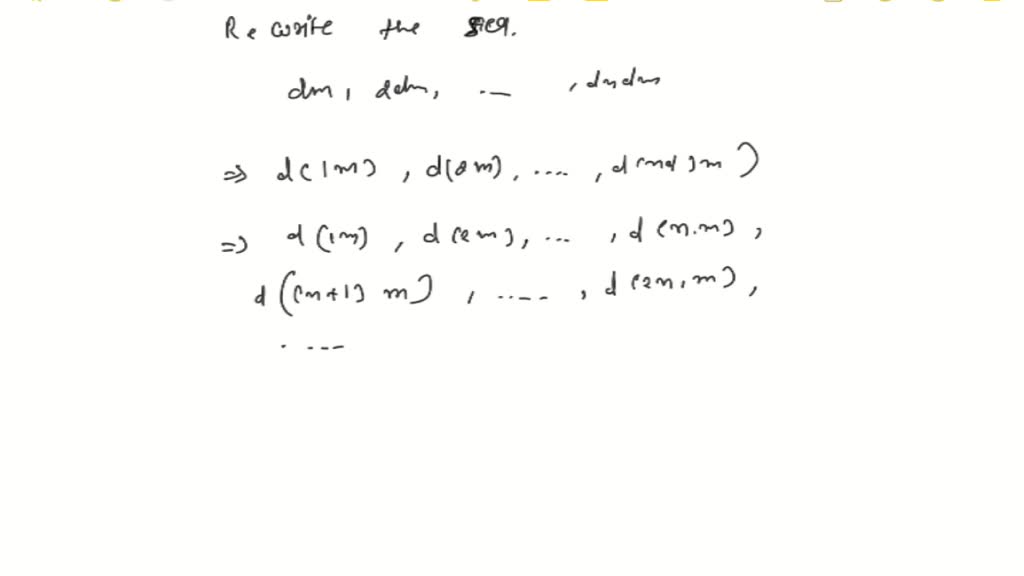 Rewrite the seq.
dm, 2dm, .— , dndm
⇒ d(1m), d(2m), ...., d(nd)m)
⇒ d(1m), d(2m), ... , d(n.m),
d((n+1) m), ....., d(2n.m),
. ...